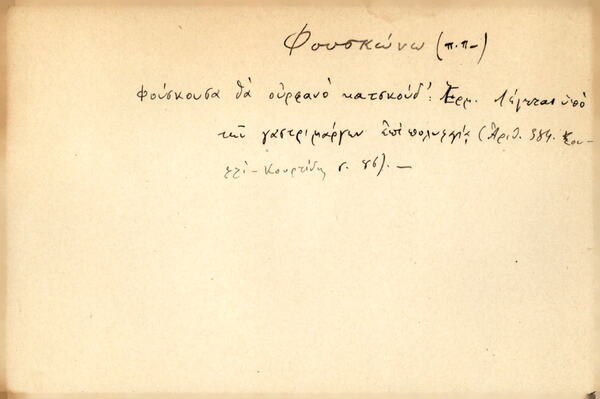 Φουσκώνω (π.π-)
φούσκουσα θὰ οὐρφανὸ κατσκούδ'! Ἑρμ. Λέγεται ὑπὸ
τῶν γαστριμάργων ἐπὶ πολυφαγίᾳ (Ἀριθ. 584. Σου-
Κουρτίδης σ. 86). —